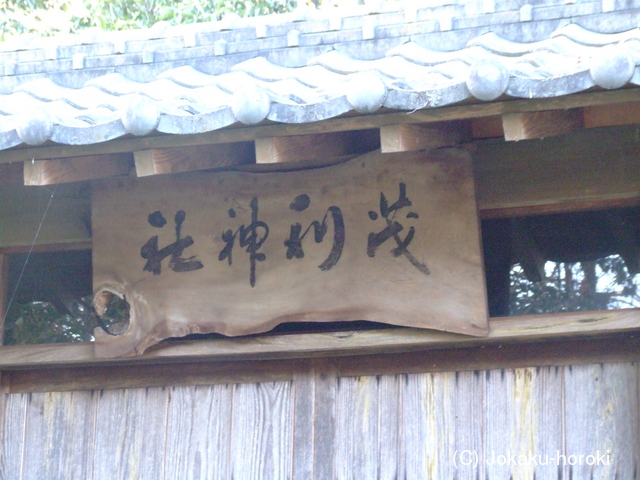 茂利神社
(C) Jokaku-horoki